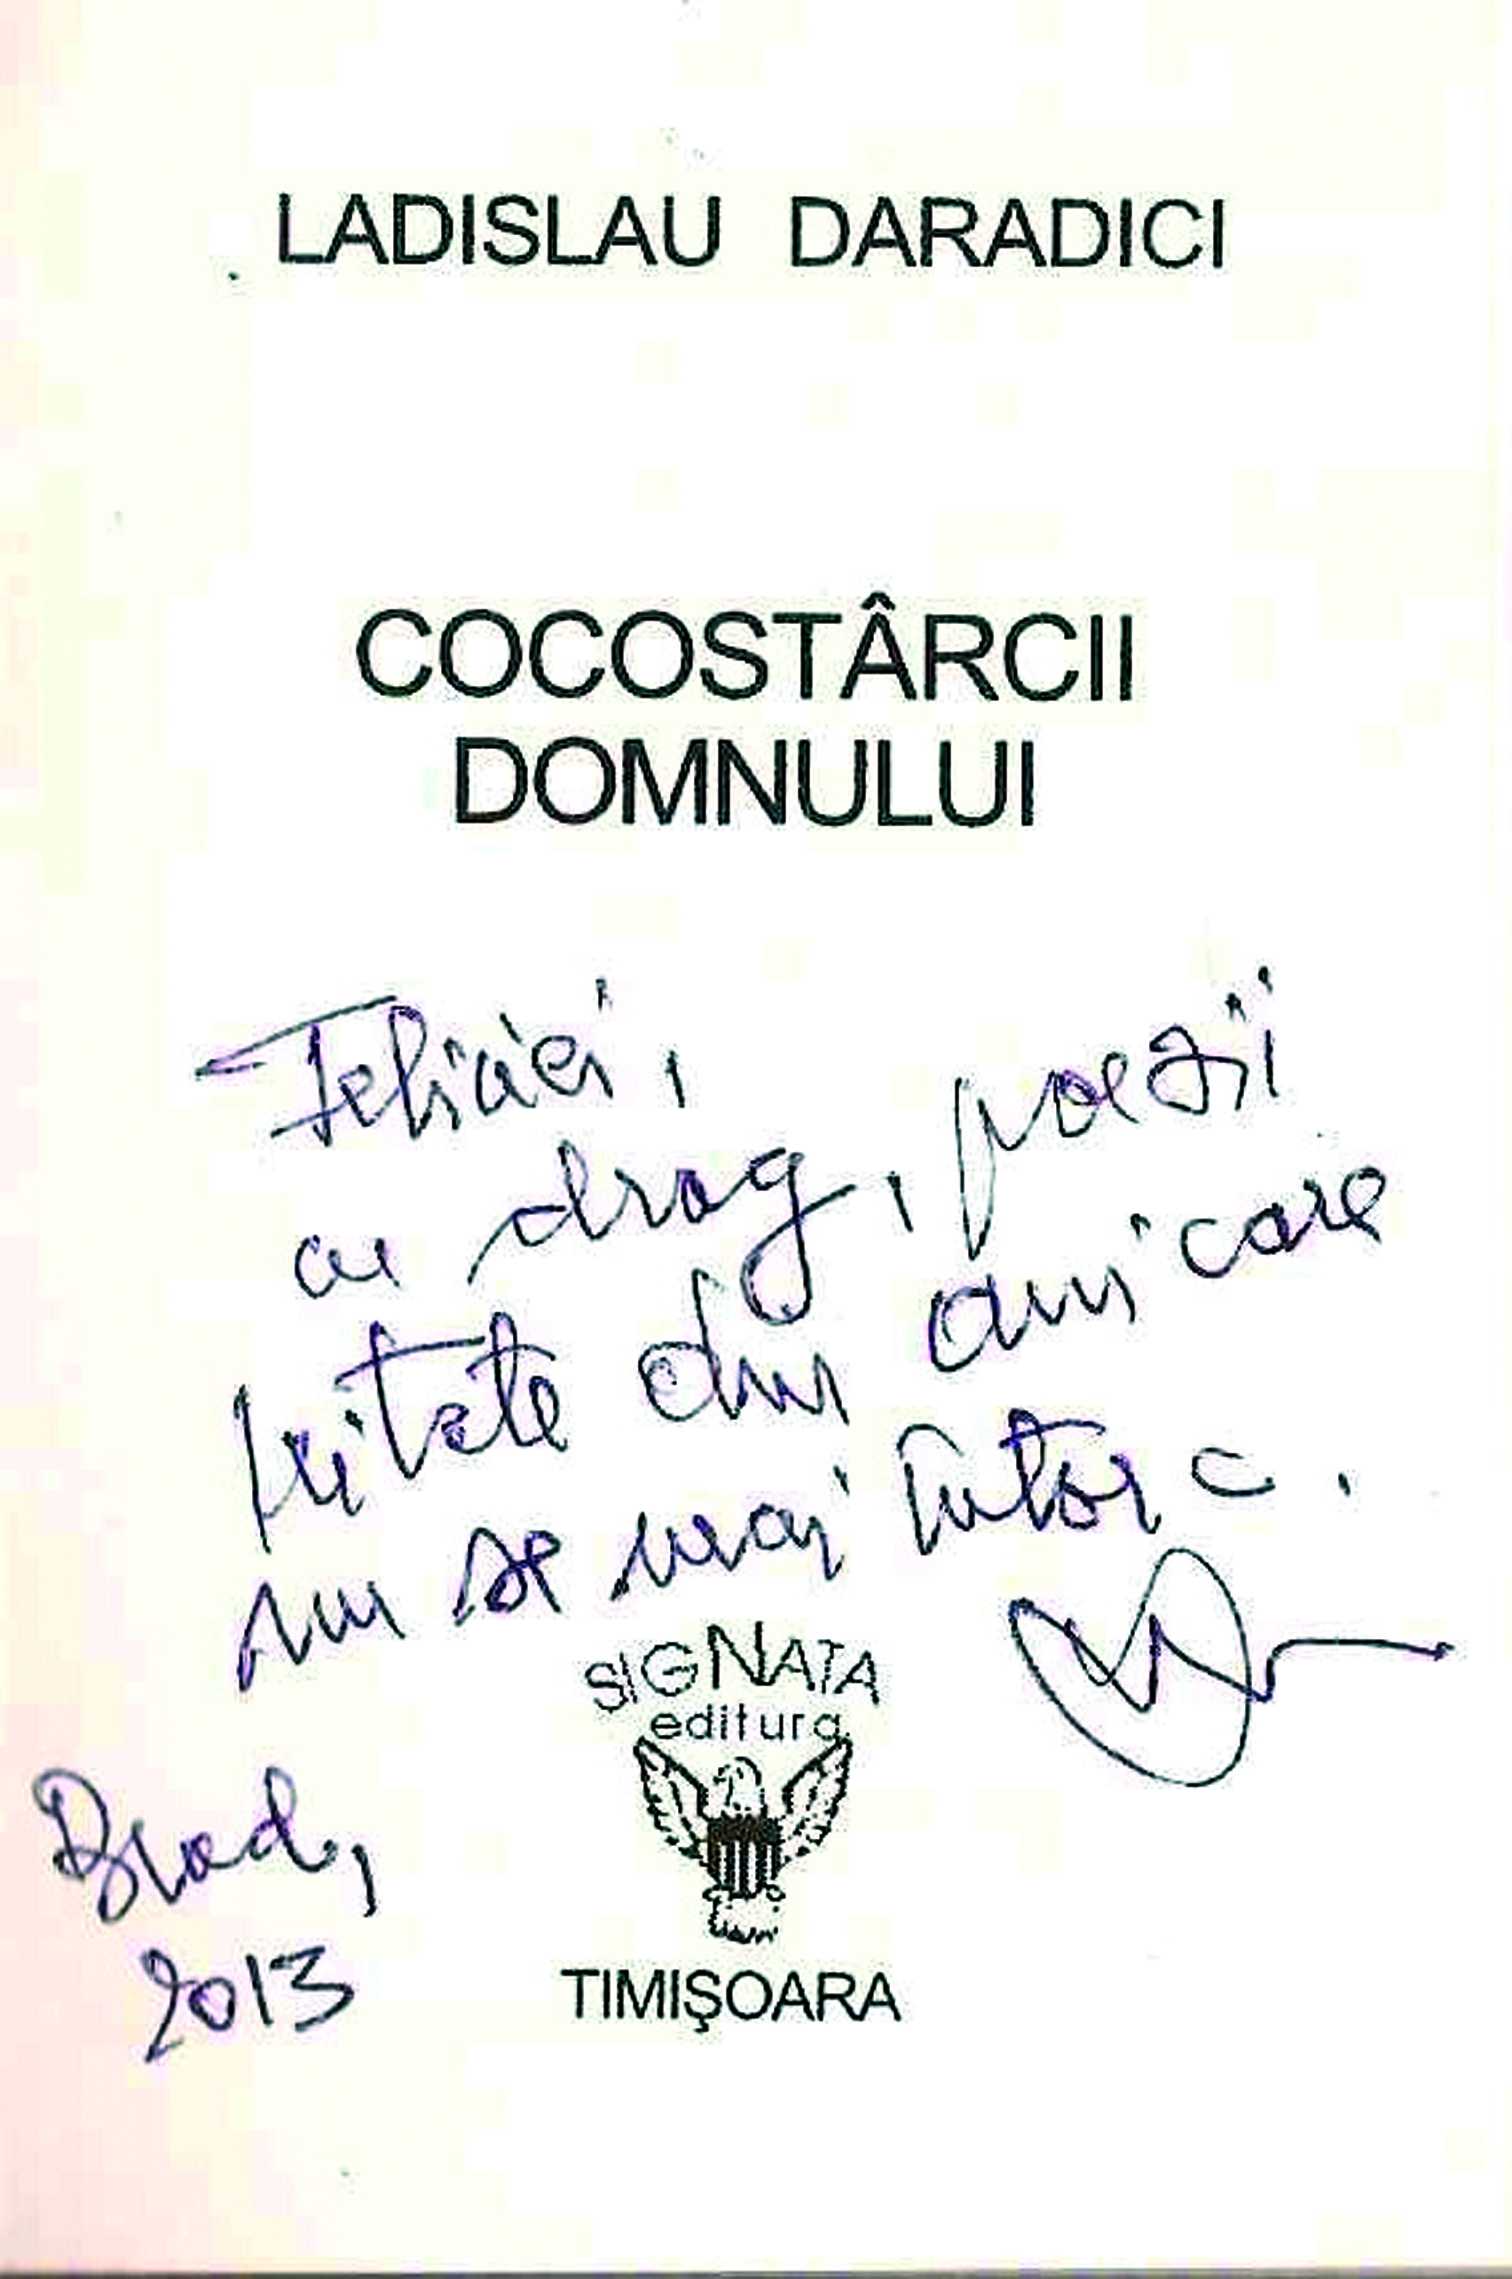 LADISLAU DARADICI
COCOSTÂRCII
DOMNULUI
Feliciei,
cu drag, poezii
uitate din ani care
nu se mai întorc.
SIGNATA
editura
Brad,
2013
TIMIŞOARA